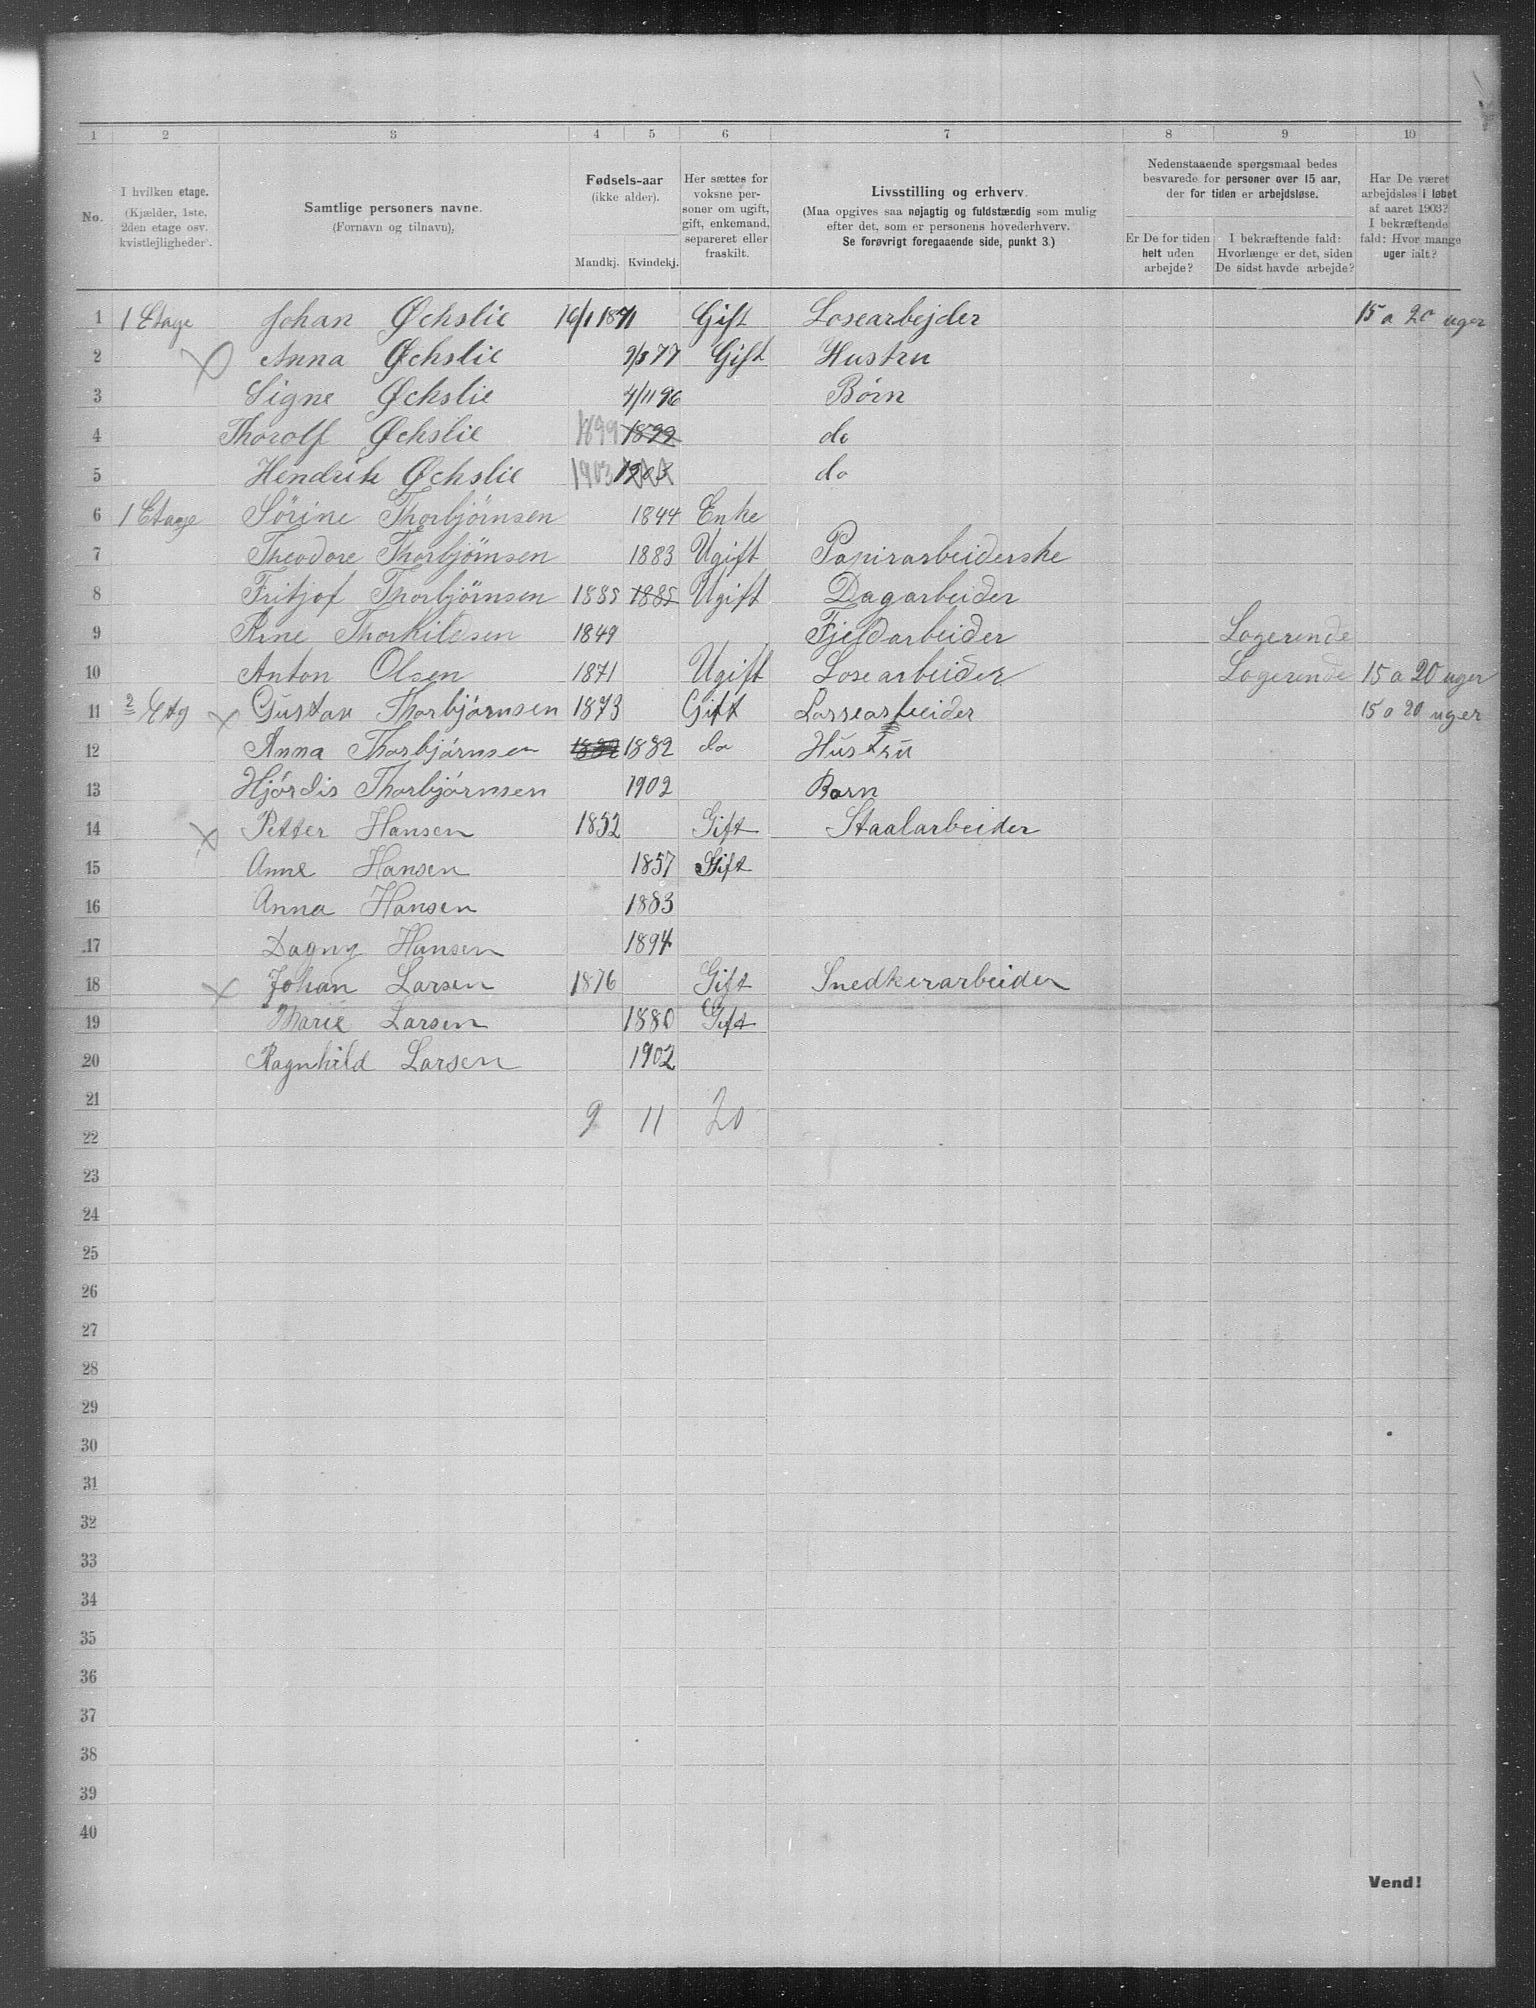 1 2 3 4 5 6 7 8 9 10
No.
I hvilken etage.
(Kjælder, 1ste,
2den etage osv.
kvistlejligheder).
Samtlige personers navne.
(Fornavn og tilnavn),
Fødsels-aar
(ikke alder).
Mandkj. Kvindekj.
Her sættes for
voksne per-
soner om ugift,
gift, enkemand,
separeret eller
fraskilt.
Livsstilling og erhverv.
(Maa opgives saa nøjagtig og fuldstændig som mulig
efter det, som er personens hovederhverv.
Se forøvrigt foregaaende side, punkt 3.)
Nedenstaaende spørgsmaal bedes
besvarede for personer over 15 aar,
der for tiden er arbejdsløse.
Er De for tiden
helt uden
arbejde?
I bekræftende fald:
Hvorlænge er det, siden
De sidst havde arbejde?
Har De været
arbejdsløs i løbet
af aaret 1903?
I bekræftende
fald: Hvor mange
uger ialt?
1 1 Etage Johan Øchslie 16/1 1871 Gift Losearbejder 15 a 20 uger
2 Anna Øchslie 9/3 77 Gift Hustru
3 Signe Øchslie 4/11 96 Børn
4 Thorolf Øchslie 1899 1899 do
5 Hendrik Øchslie 1903 1903 do
6 1 Etage Sörine Thorbjörnsen 1844 Enke
7 Theodore Thorbjörnsen 1883 Ugift Papirarbeiderske
8 Fritjof Thorbjörnsen 1885 1885 Ugift Dagarbeider
9 Arne Thorkildsen 1849 Fjeldarbeider Logerende
10 Anton Olsen 1871 Ugift Losearbeider Logerende 15 a 20 uger
11 2 Etg Gustav Thorbjörnsen 1873 Gift Lossearbeider 15 a 20 uger
12 Anna Thorbjörnsen 1882 1882 do Hustru
13 Hjördis Thorbjörnsen 1902 Barn
14 Petter Hansen 1852 Gift Staalarbeider
15 Anne Hansen 1857 Gift
16 Anna Hansen 1883
17 Dagny Hansen 1894
18 Johan Larsen 1876 Gift Snedkerarbeider
19 Marie Larsen 1880 Gift
20 Ragnhild Larsen 1902
21
9 11 20
22
23
24
25
26
27
28
29
30
31
32
33
34
35
36
37
38
39
40
Vend!